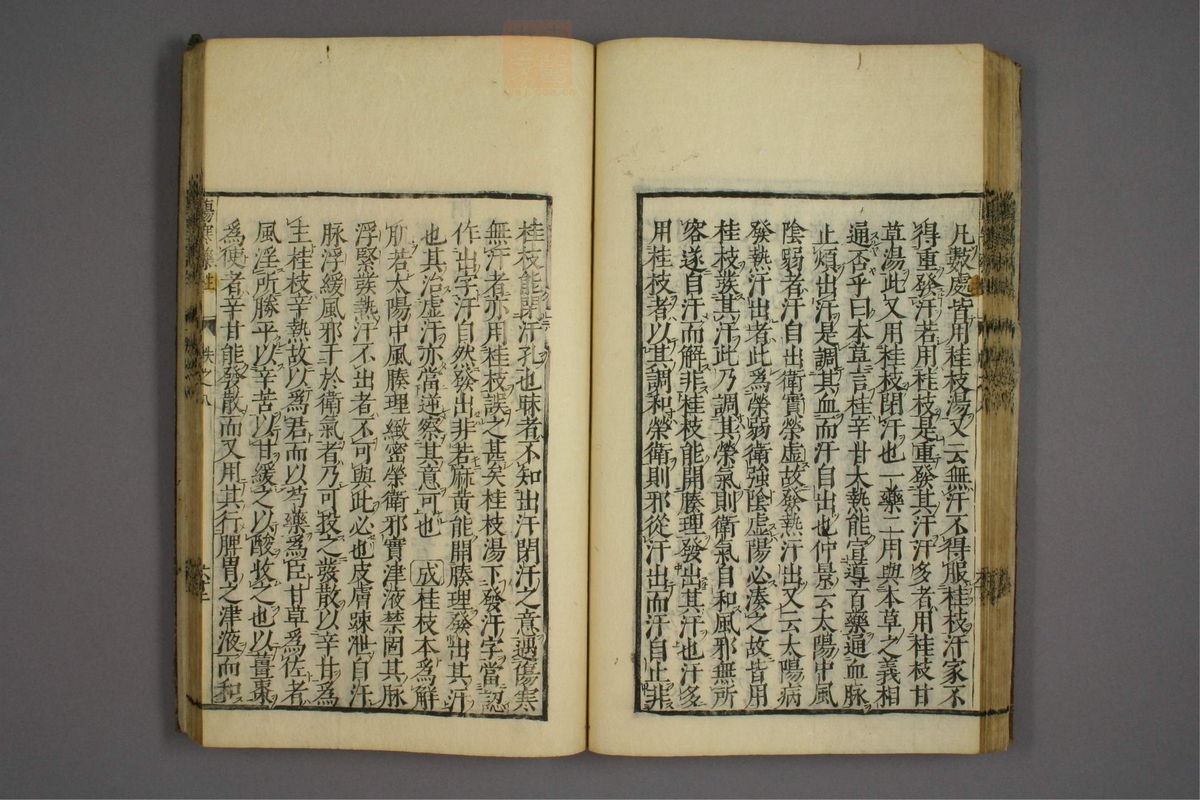 凡數處皆用桂枝湯又云無汗不得服桂枝汗家不
得重發汗若用桂枝是重發其汗汗多者用桂枝甘
草湯此又用桂枝閉汗也一藥二用與本草之義相
通否乎曰本草言桂辛甘大熱能宣導百藥通血脉
止煩出汗是調其血而汗自出也仲景云太陽中風
陰弱者汗自出衛實榮虛故發熱汗出又云太陽病
發熱汗出者此爲榮弱衛強陰虛陽必湊之故皆用
桂枝發其汗此乃調其榮氣則衛氣自和風邪無所
容遂自汗而解非桂枝能開腠理發出其汗也汗多
用桂枝者以其調和榮衛則邪從汗出而汗自止非
桂枝能閉汗孔也昧者不知出汗閉汗之意遇傷寒
無汗者亦用桂枝誤之甚矣桂枝湯下發汗字當認
作出字汗自然發出非若麻黃能開腠理發出其汗
也其治虛汗亦當逆察其意可也 成 桂枝本爲解
肌若太陽中風腠理緻密榮衛邪實津液禁固其脉
浮緊發熱汗不出者不可與此必也皮膚踈泄自汗
脉浮緩風邪干於衛氣者乃可投之發散以辛甘爲
主桂枝辛熱故以爲君而以芍藥爲臣甘草爲佐者
風淫所勝平以辛苦以甘緩之以酸收之也以薑棗
爲使者辛甘能發散而又用其行脾胃之津液而和